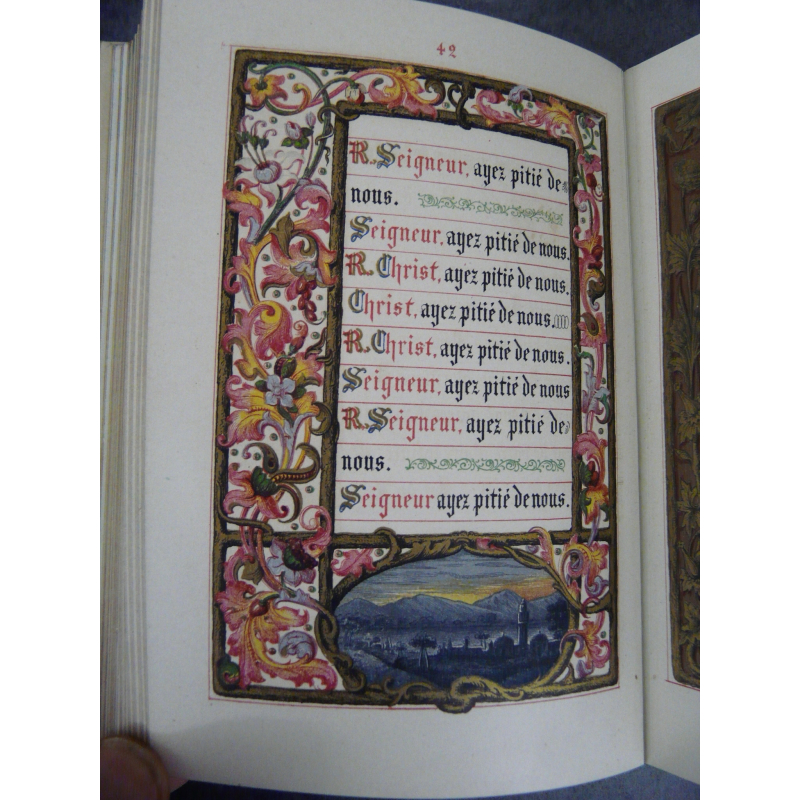 42
R. Seigneur, ayez pitié de
nous.
Seigneur, ayez pitié de nous.
R. Christ, ayez pitié de nous.
Christ, ayez pitié de nous.
R. Christ, ayez pitié de nous.
Seigneur, ayez pitié de nous
R. Seigneur, ayez pitié de
nous.
Seigneur ayez pitié de nous.